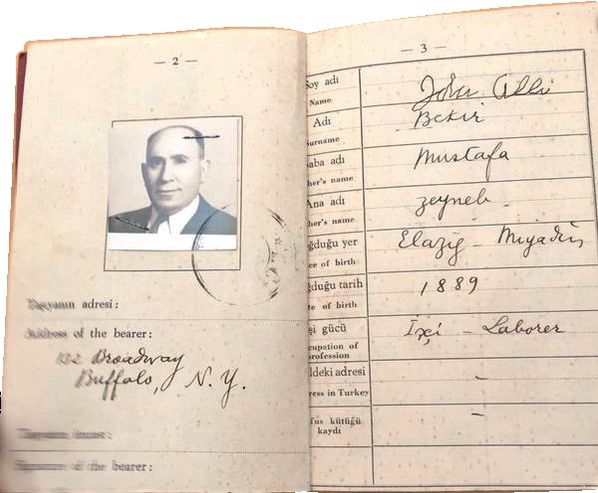 — 2 —
Taşıyanın adresi :
Address of the bearer :
132 Broadway
Buffalo, N. Y.
Taşıyanın imzası :
Signature of the bearer :
— 3 —
Soy adı
Name
John Alli
Adı
urname
Bekir
aba adı
her's name
Mustafa
Ana adı
her's name
Zeyneb
ğduğu yer
ce of birth
Elaziğ
ğduğu tarih
te of birth
1889
şi gücü
cupation of
profession
İşçi — Laborer
ldeki adresi
ress in Turkey
-
us kütüğü
kaydi
-